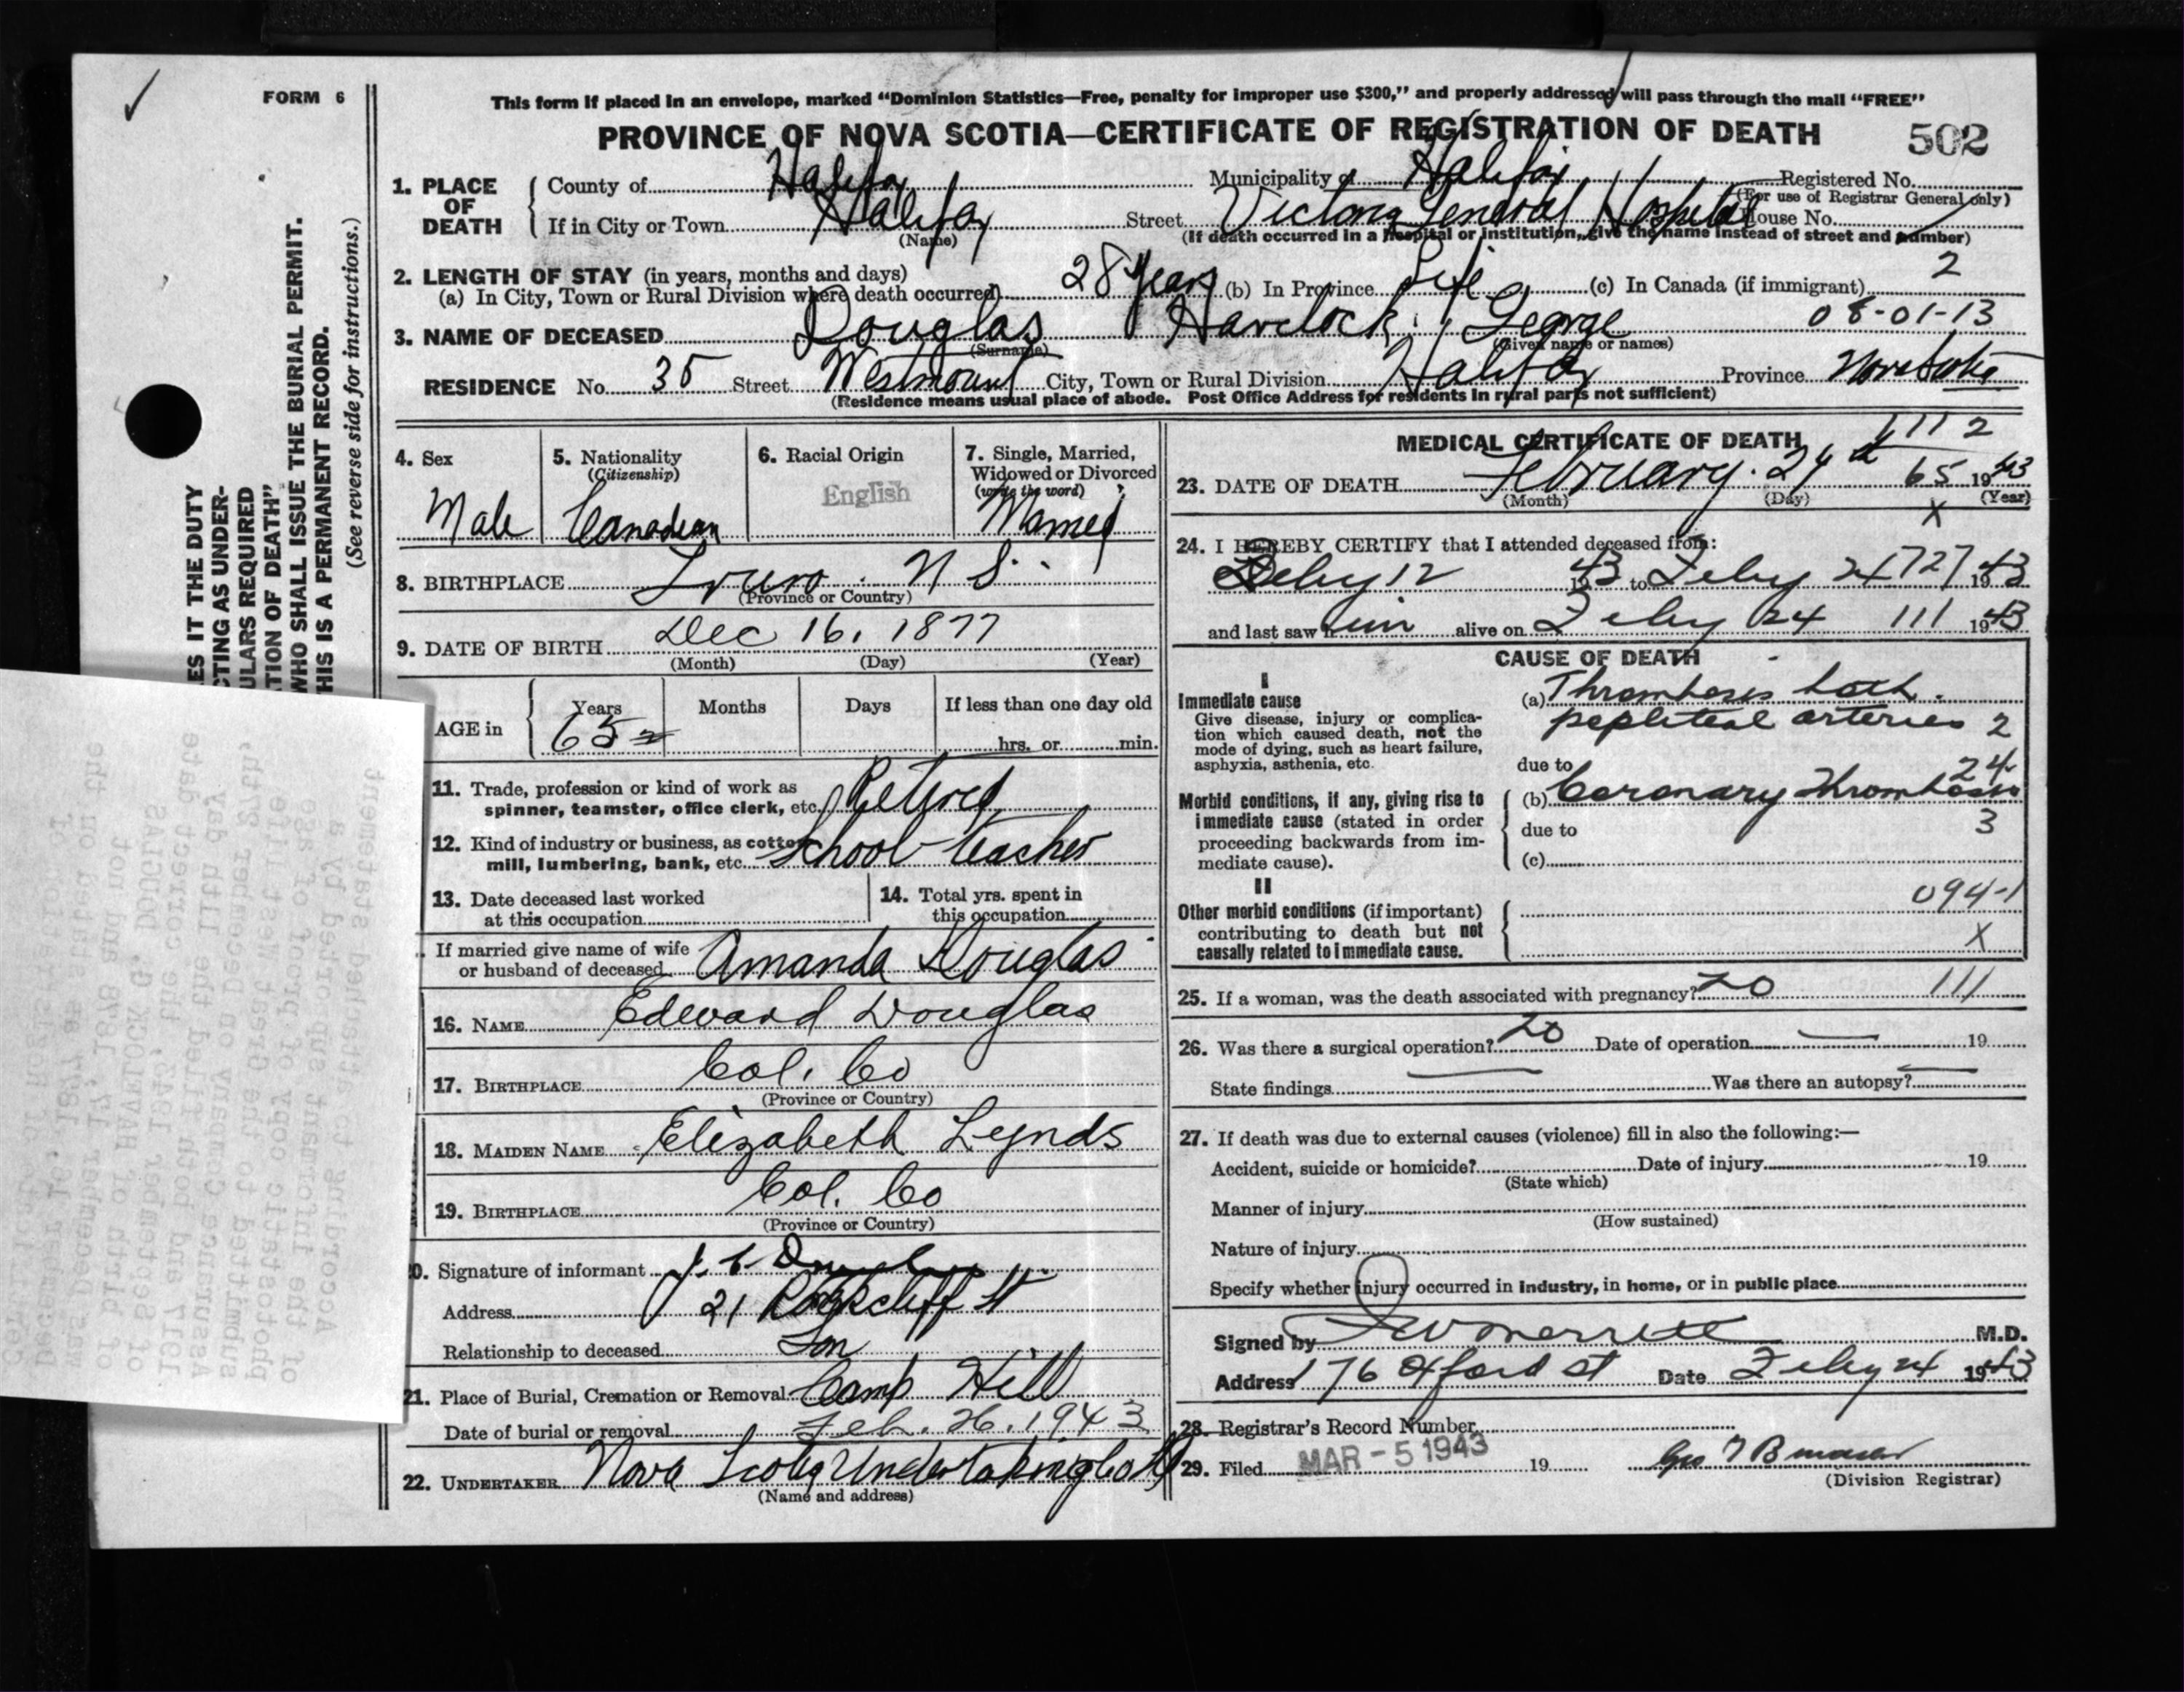 FORM 6
This form if placed in an envelope, marked “Dominion Statistics—Free, penalty for improper use $300,” and properly addressed will pass through the mail “FREE”
PROVINCE OF NOVA SCOTIA—CERTIFICATE OF REGISTRATION OF DEATH 502
1. PLACE OF DEATH
County of Halifax Municipality of Halifax Registered No.
(For use of Registrar General only)
If in City or Town Halifax Street Victoria General Hospital House No.
(Name) (If death occurred in a hospital or institution, give the name instead of street and number)
2. LENGTH OF STAY (in years, months and days)
(a) In City, Town or Rural Division where death occurred 28 Years (b) In Province Life (c) In Canada (if immigrant) 2
3. NAME OF DECEASED Douglas Havelock George 08-01-13
(Surname) (Given name or names)
RESIDENCE No. 35 Street Westmount City, Town or Rural Division Halifax Province Nova Scotia
(Residence means usual place of abode. Post Office Address for residents in rural parts not sufficient)
4. Sex
Male
5. Nationality
(Citizenship)
Canadian
6. Racial Origin
English
7. Single, Married,
Widowed or Divorced
(write the word)
Married
8. BIRTHPLACE Truro N S.
(Province or Country)
9. DATE OF BIRTH Dec 16, 1877
(Month) (Day) (Year)
AGE in Years Months Days If less than one day old
65 hrs. or min.
11. Trade, profession or kind of work as
spinner, teamster, office clerk, etc. Retired
12. Kind of industry or business, as cotton
mill, lumbering, bank, etc. School teacher
13. Date deceased last worked
at this occupation
14. Total yrs. spent in
this occupation
If married give name of wife
or husband of deceased Amanda Douglas
16. NAME Edward Douglas
17. BIRTHPLACE Col. Co
(Province or Country)
18. MAIDEN NAME Elizabeth Lynds
19. BIRTHPLACE Col. Co
(Province or Country)
20. Signature of informant
Address 21 Rockcliff St
Relationship to deceased Son
21. Place of Burial, Cremation or Removal Camp Hill
Date of burial or removal Feb. 26. 1943
22. UNDERTAKER Nova Scotia Undertaking Co
(Name and address)
MEDICAL CERTIFICATE OF DEATH 111 2
23. DATE OF DEATH February 24th 65 1943
(Month) (Day) (Year)
X
24. I HEREBY CERTIFY that I attended deceased from:
Feby 12 1943 to Feby 24 727 1943
and last saw him alive on Feby 24 111 1943
CAUSE OF DEATH
I
Immediate cause
Give disease, injury or complica-
tion which caused death, not the
mode of dying, such as heart failure,
asphyxia, asthenia, etc.
(a) Thrombosis both
popliteal arteries 2
due to 24
Morbid conditions, if any, giving rise to
immediate cause (stated in order
proceeding backwards from im-
mediate cause).
(b) Coronary Thrombosis
due to 3
(c)
II
Other morbid conditions (if important)
contributing to death but not
causally related to immediate cause.
094-1
X
25. If a woman, was the death associated with pregnancy? no 111
26. Was there a surgical operation? no Date of operation — 19
State findings Was there an autopsy?
27. If death was due to external causes (violence) fill in also the following:—
Accident, suicide or homicide? Date of injury 19
(State which)
Manner of injury
(How sustained)
Nature of injury
Specify whether injury occurred in industry, in home, or in public place
Signed by Merritt M.D.
Address 176 Oxford St Date Feby 24 1943
28. Registrar's Record Number
29. Filed MAR - 5 1943 19
(Division Registrar)
ES IT THE DUTY
CTING AS UNDER-
ULARS REQUIRED
ATION OF DEATH”
WHO SHALL ISSUE THE BURIAL PERMIT.
THIS IS A PERMANENT RECORD.
(See reverse side for instructions.)
According to attached statement
of the informant supported by a
photostatic copy of proof of age
submitted to the Great West Life
Assurance Company on December 27th,
1917 and both filed the 11th day
of September 1947, the correct date
of birth of HAVELOCK G. DOUGLAS
was December 17, 1878 and not
December 16, 1877 as stated on the